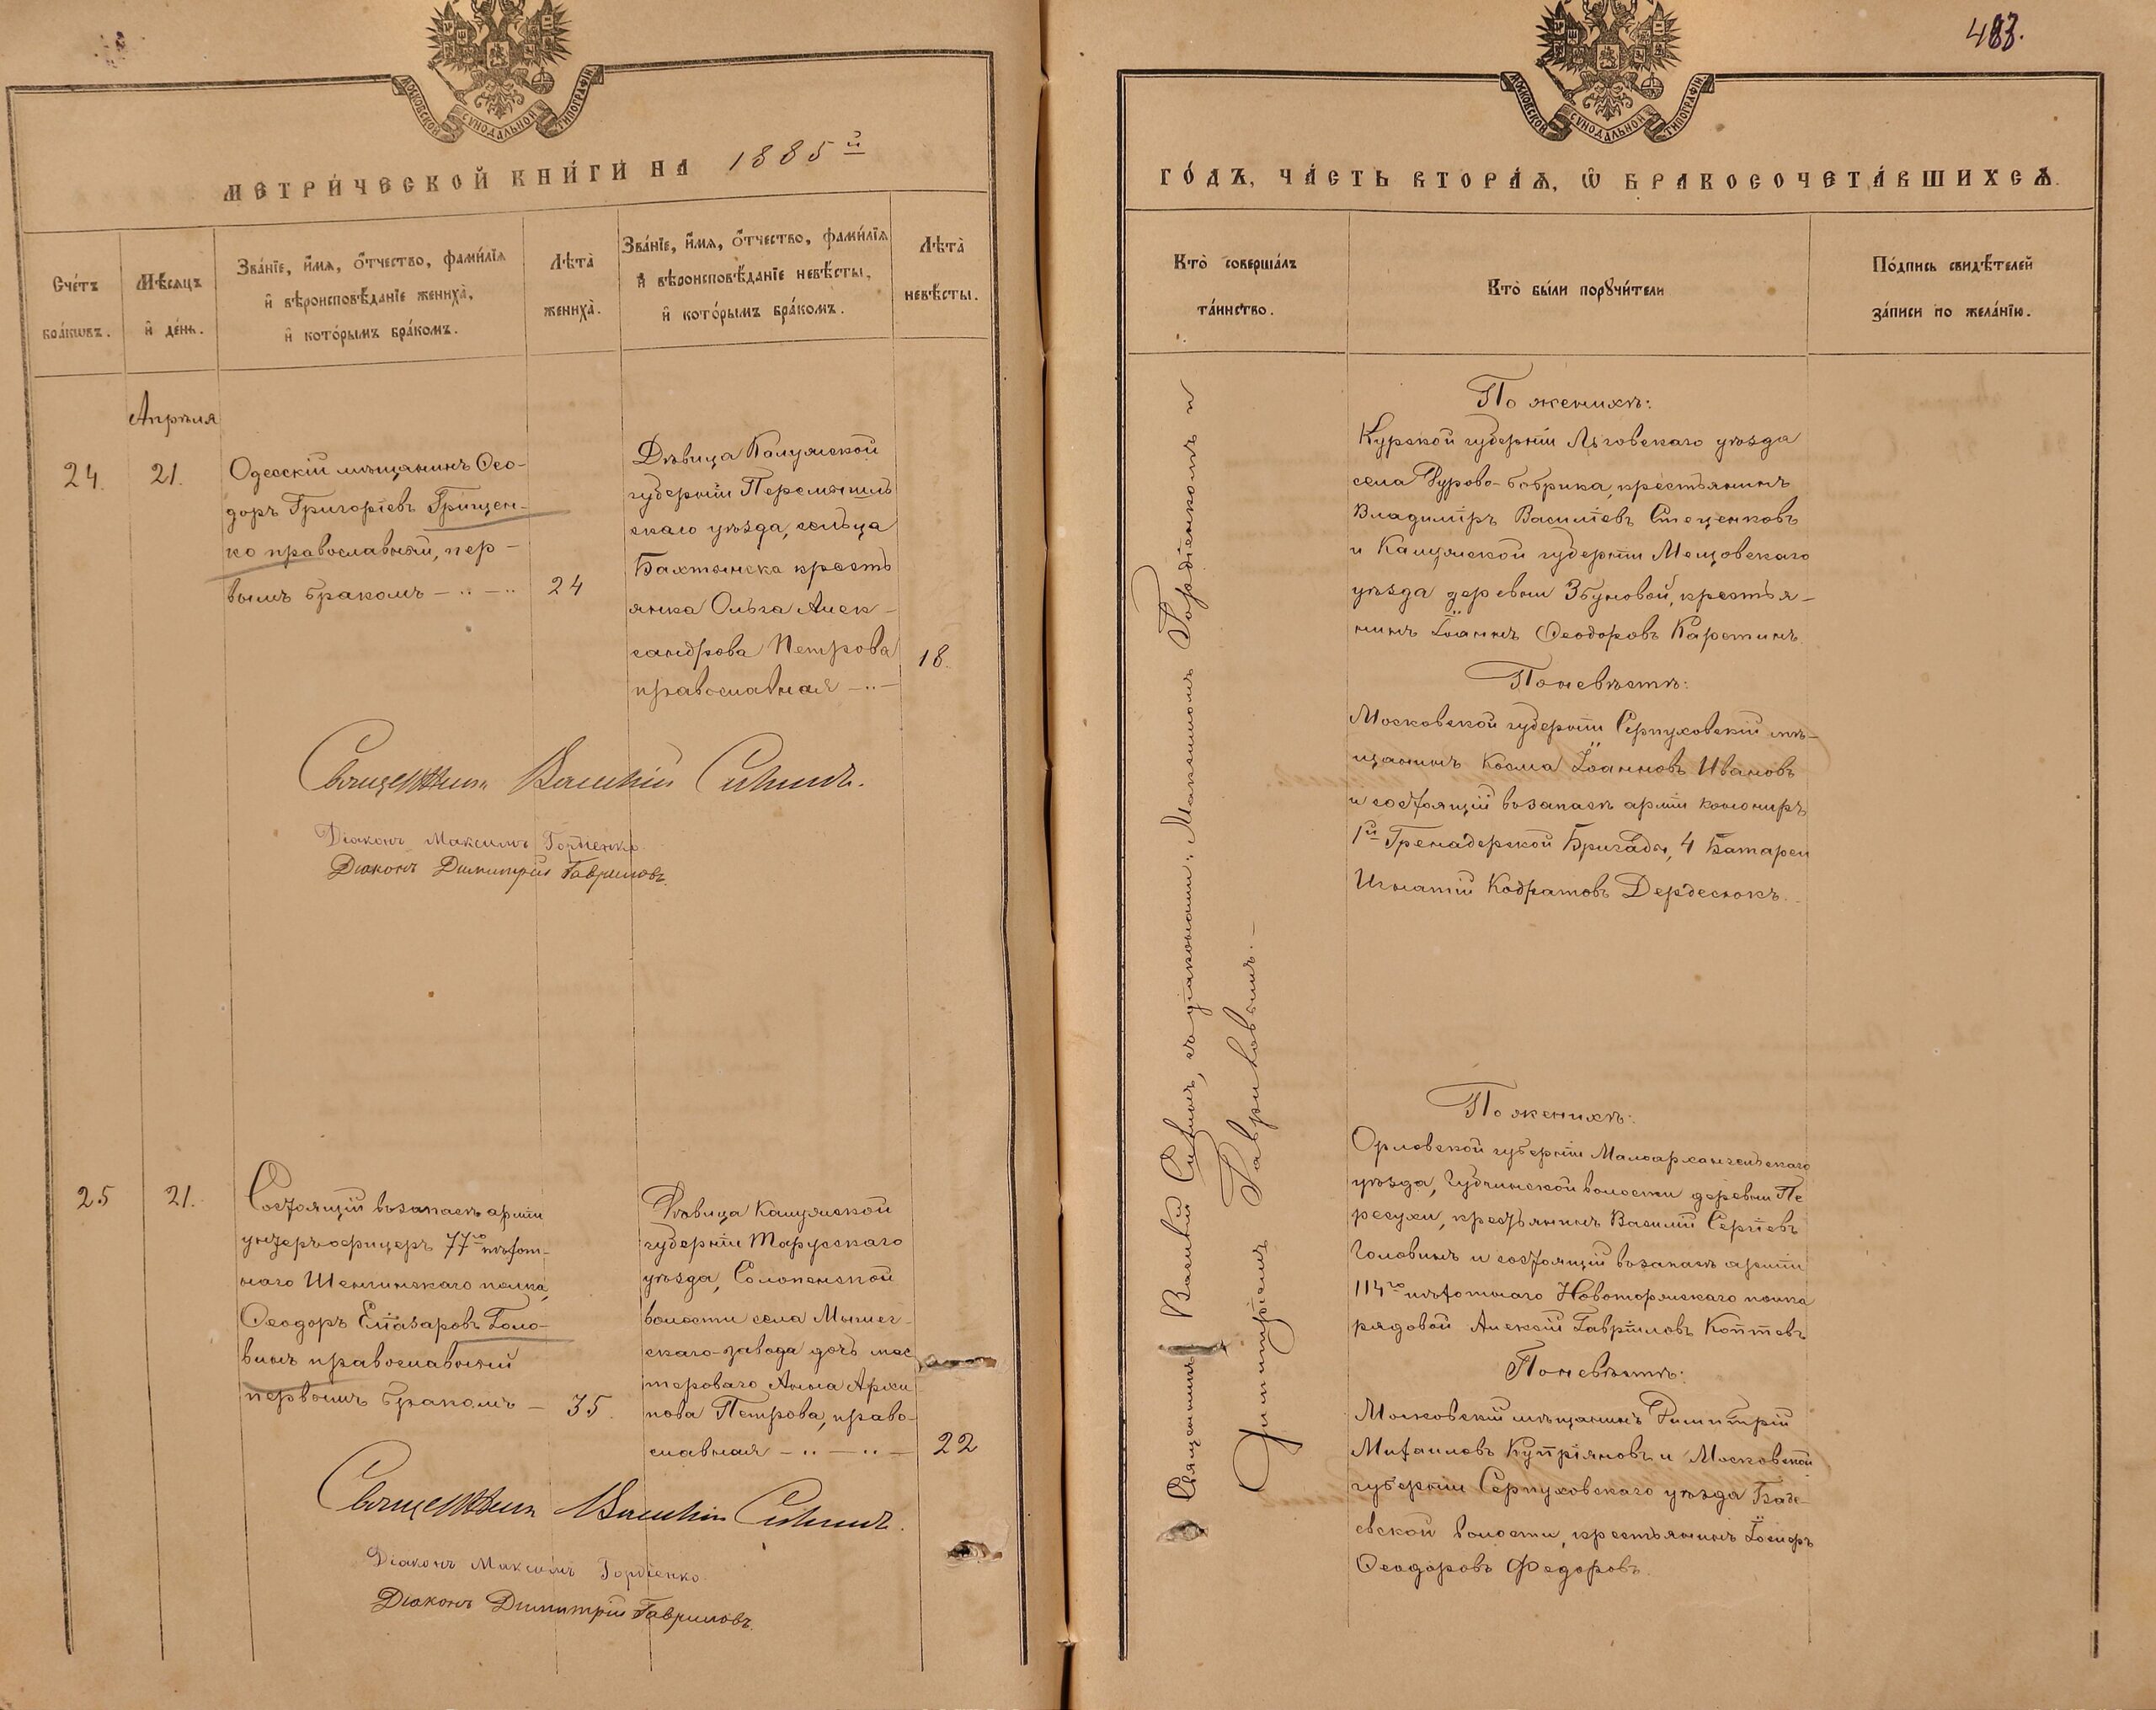 МОСКОВСКОЙ СУНОДАЛЬНОЙ ТИПОГРАФІИ.
МЕТРИ́ЧЕСКОЙ КНИ́ГИ НА 1885й
Сче́тъ бра́кѡвъ.
Мѣ́сяцъ и де́нь.
Зва́нїе, и́мя, ѻ́тчество, фами́лїя
и вѣроисповѣ́данїе жениха̀,
и кото́рымъ бра́комъ.
Лѣта̀
жениха̀.
Зва́нїе, и́мя, ѻ́тчество, фами́лїя
и вѣроисповѣ́данїе невѣ́сты,
и кото́рымъ бра́комъ.
Лѣта̀
невѣ́сты.
Апрѣля
24.
21.
Одесскій мѣщанинъ Ѳео-
доръ Григоріевъ Грищен-
ко православный, пер-
вымъ бракомъ
24
Дѣвица Калужской
губерніи Перемышль
скаго уѣзда, сельца
Бахтинска кресть
янка Ольга Алек-
сандрова Петрова
православная
18.
Священникъ Василій Сивинъ.
Діаконъ Максимъ Гордіенко
Діаконъ Димитрій Гавриловъ.
25
21.
Состоящій въ запасѣ арміи
унтеръ-офицеръ 77го пѣхот-
наго Тенгинскаго полка,
Ѳеодоръ Еліазаровъ Голо-
винъ православный
первымъ бракомъ
35.
Дѣвица Калужской
губерніи Тарусскаго
уѣзда, Солопенской
волости села Мышег-
скаго-завода дочь мас
тероваго Анна Архи
пова Петрова, право-
славная
22
Священникъ Василій Сивинъ.
Діаконъ Максимъ Гордіенко.
Діаконъ Димитрій Гавриловъ.
483.
МОСКОВСКОЙ СУНОДАЛЬНОЙ ТИПОГРАФІИ.
ГО́ДЪ, ЧА́СТЬ ВТОРА́Я, Ѽ БРАКОСОЧЕТА́ВШИХСЯ.
Кто̀ соверша́лъ
та́инство.
Кто̀ бы́ли поручи́тели
По́дпись свидѣ́телей
за́писи по жела́нїю.
Священникъ Василій Сивинъ, съ діаконами: Максимомъ Гордіенкомъ и
Димитріемъ Гавриловымъ.
По женихѣ:
Курской губерніи Льговскаго уѣзда
села Дурово-Бобрика, крестьянинъ
Владиміръ Василіевъ Стеценковъ
и Калужской губерніи Мещовскаго
уѣзда деревни Збуновой, крестья-
нинъ Іоаннъ Ѳеодоровъ Каретинъ.
По невѣстѣ:
Московской губерніи Серпуховскій мѣ-
щанинъ Косма Іоанновъ Ивановъ
и состоящій въ запасѣ арміи канониръ
1й Гренадерской Бригады, 4 Батареи
Игнатій Кодратовъ Дердесюкъ.
По женихѣ:
Орловской губерніи Малоархангельскаго
уѣзда, Губкинской волости деревни Пе
ресухи, крестьянинъ Василій Сергіевъ
Головинъ и состоящій въ запасѣ арміи
114го пѣхотнаго Новоторжскаго полка
рядовой Алексій Гавріиловъ Коптевъ
По невѣстѣ:
Московскій мѣщанинъ Димитрій
Михаиловъ Купріяновъ и Московской
губерніи Серпуховскаго уѣзда Баде-
евской волости, крестьянинъ Іосифъ
Ѳеодоровъ Федоровъ.